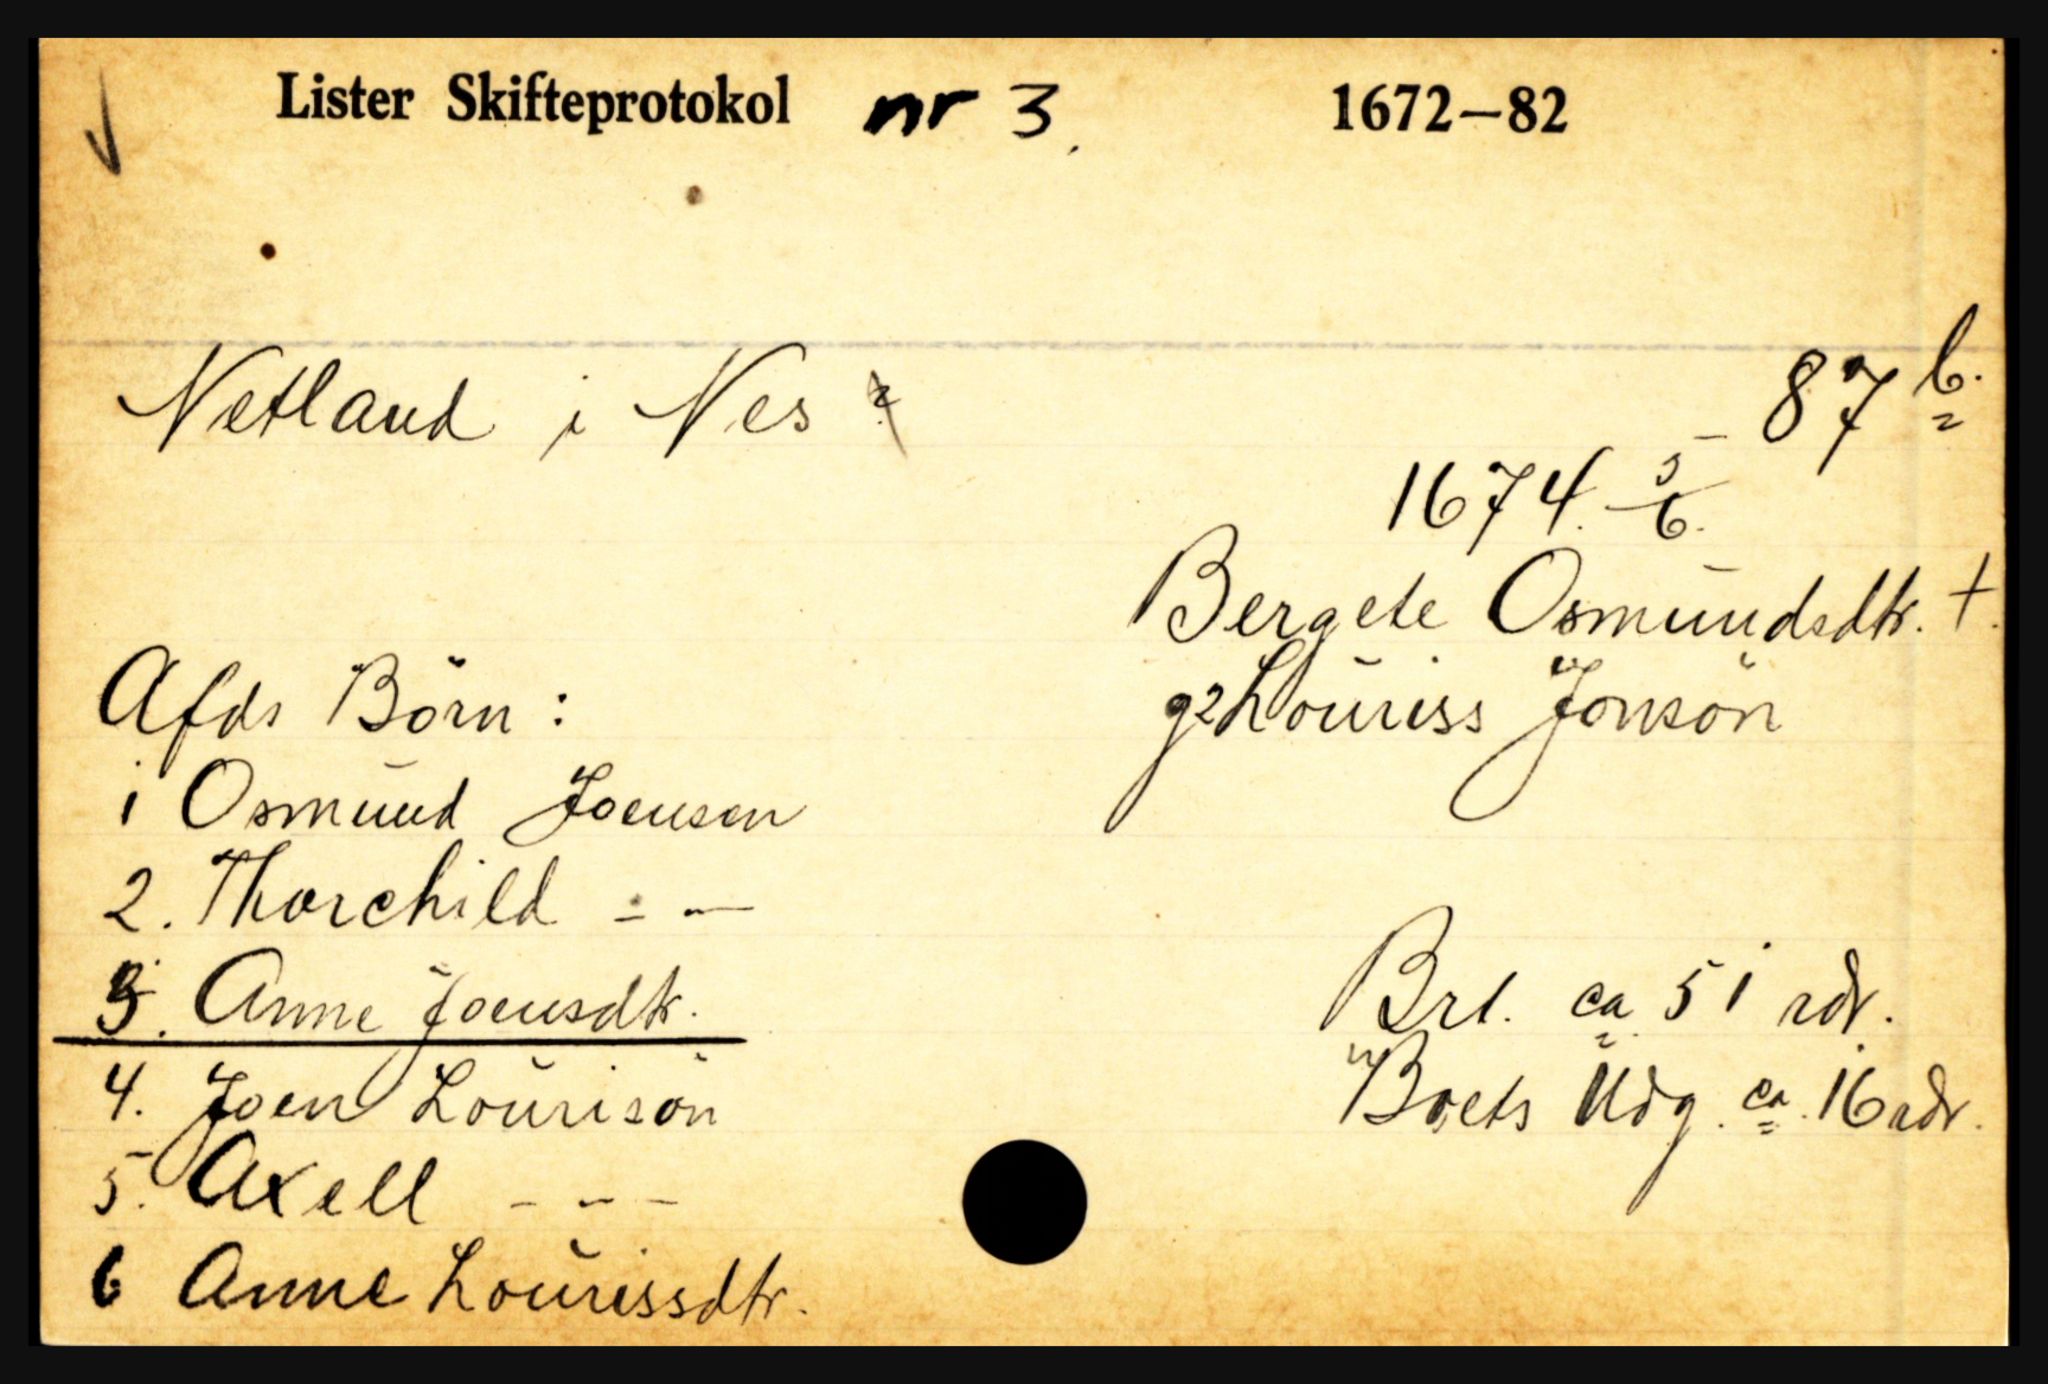 Lister Skifteprotokol nr 3. 1672–82
Netland i Ves ?
87 b.
1674. 5/6.
Bergete Osmundsdtr. +.
g2 Louriss Jonsøn
Afds Børn :
1 Osmund Joensen
2. Thorchild - -
3. Anne Joensdtr.
4. Joen Lourisøn
5. Axell - - -
6 Anne Lourissdtr.
Brt. ca 51 rdr.
Boets Udg. ca. 16 rdr.